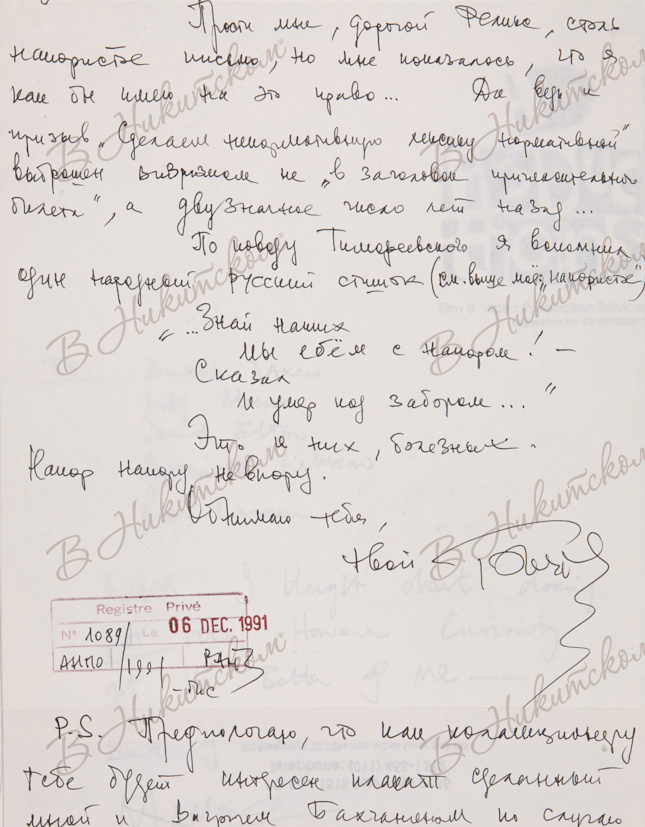 Прости мне, дорогой Феликс, столь
напористое письмо, но мне показалось, что я
как бы имею на это право... Да ведь и
призыв „Сделаем ненормативную лексику нормативной"
выброшен не „в заголовок пригласительного
билета", а двузначное число лет назад...
По поводу Тимофеевского я вспомнил
один народный русский стишок (см. выше моё: „напористое")
„...Знай наших
Мы ебём с напором! —
Сказал
И умер под забором..."
Это о них, болезных.
Напор напору не впору.
Обнимаю тебя,
твой
Registre Privé
N° 1089/ Le 06 DEC. 1991
/1991
P.S. Предполагаю, что как коллекционеру
тебе будет интересен плакат сделанный
мной и Вагричем Бахчаняном по случаю
В Никитском